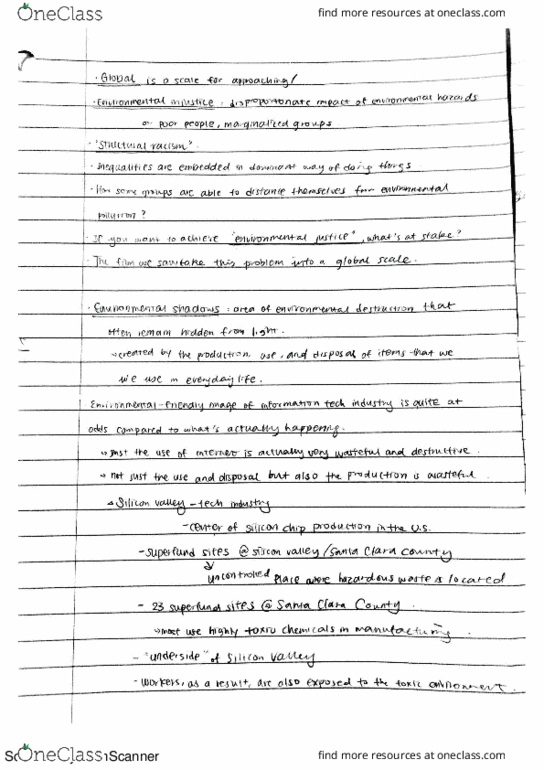 OneClass find more resources at oneclass.com
· Global is a scale for approaching /
· Environmental injustice : disproportionate impact of environmental hazards
on poor people, marginalized groups
· "Structural racism".
· Inequalities are embedded in dominant way of doing things
· How some groups are able to distance themselves from environmental
pollution ?
· If you want to achieve "environmental justice", what's at stake?
· The film we saw take this problem into a global scale.
· Environmental shadows : area of environmental destruction that
often remain hidden from light.
→ created by the production, use, and disposal of items that we
we use in everyday life.
Environmental-friendly image of information tech industry is quite at
odds compared to what's actually happening.
→ just the use of internet is actually very wasteful and destructive.
→ not just the use and disposal but also the production is wasteful.
→ Silicon valley - tech industry
- center of silicon chip production in the U.S.
- superfund sites @ silicon valley / Santa Clara county
↓
uncontrolled place where hazardous waste is located
- 23 superfund sites @ Santa Clara County.
→ most use highly toxic chemicals in manufacturing.
- "underside" of Silicon Valley
- workers, as a result, are also exposed to the toxic environment.
OneClass Scanner find more resources at oneclass.com